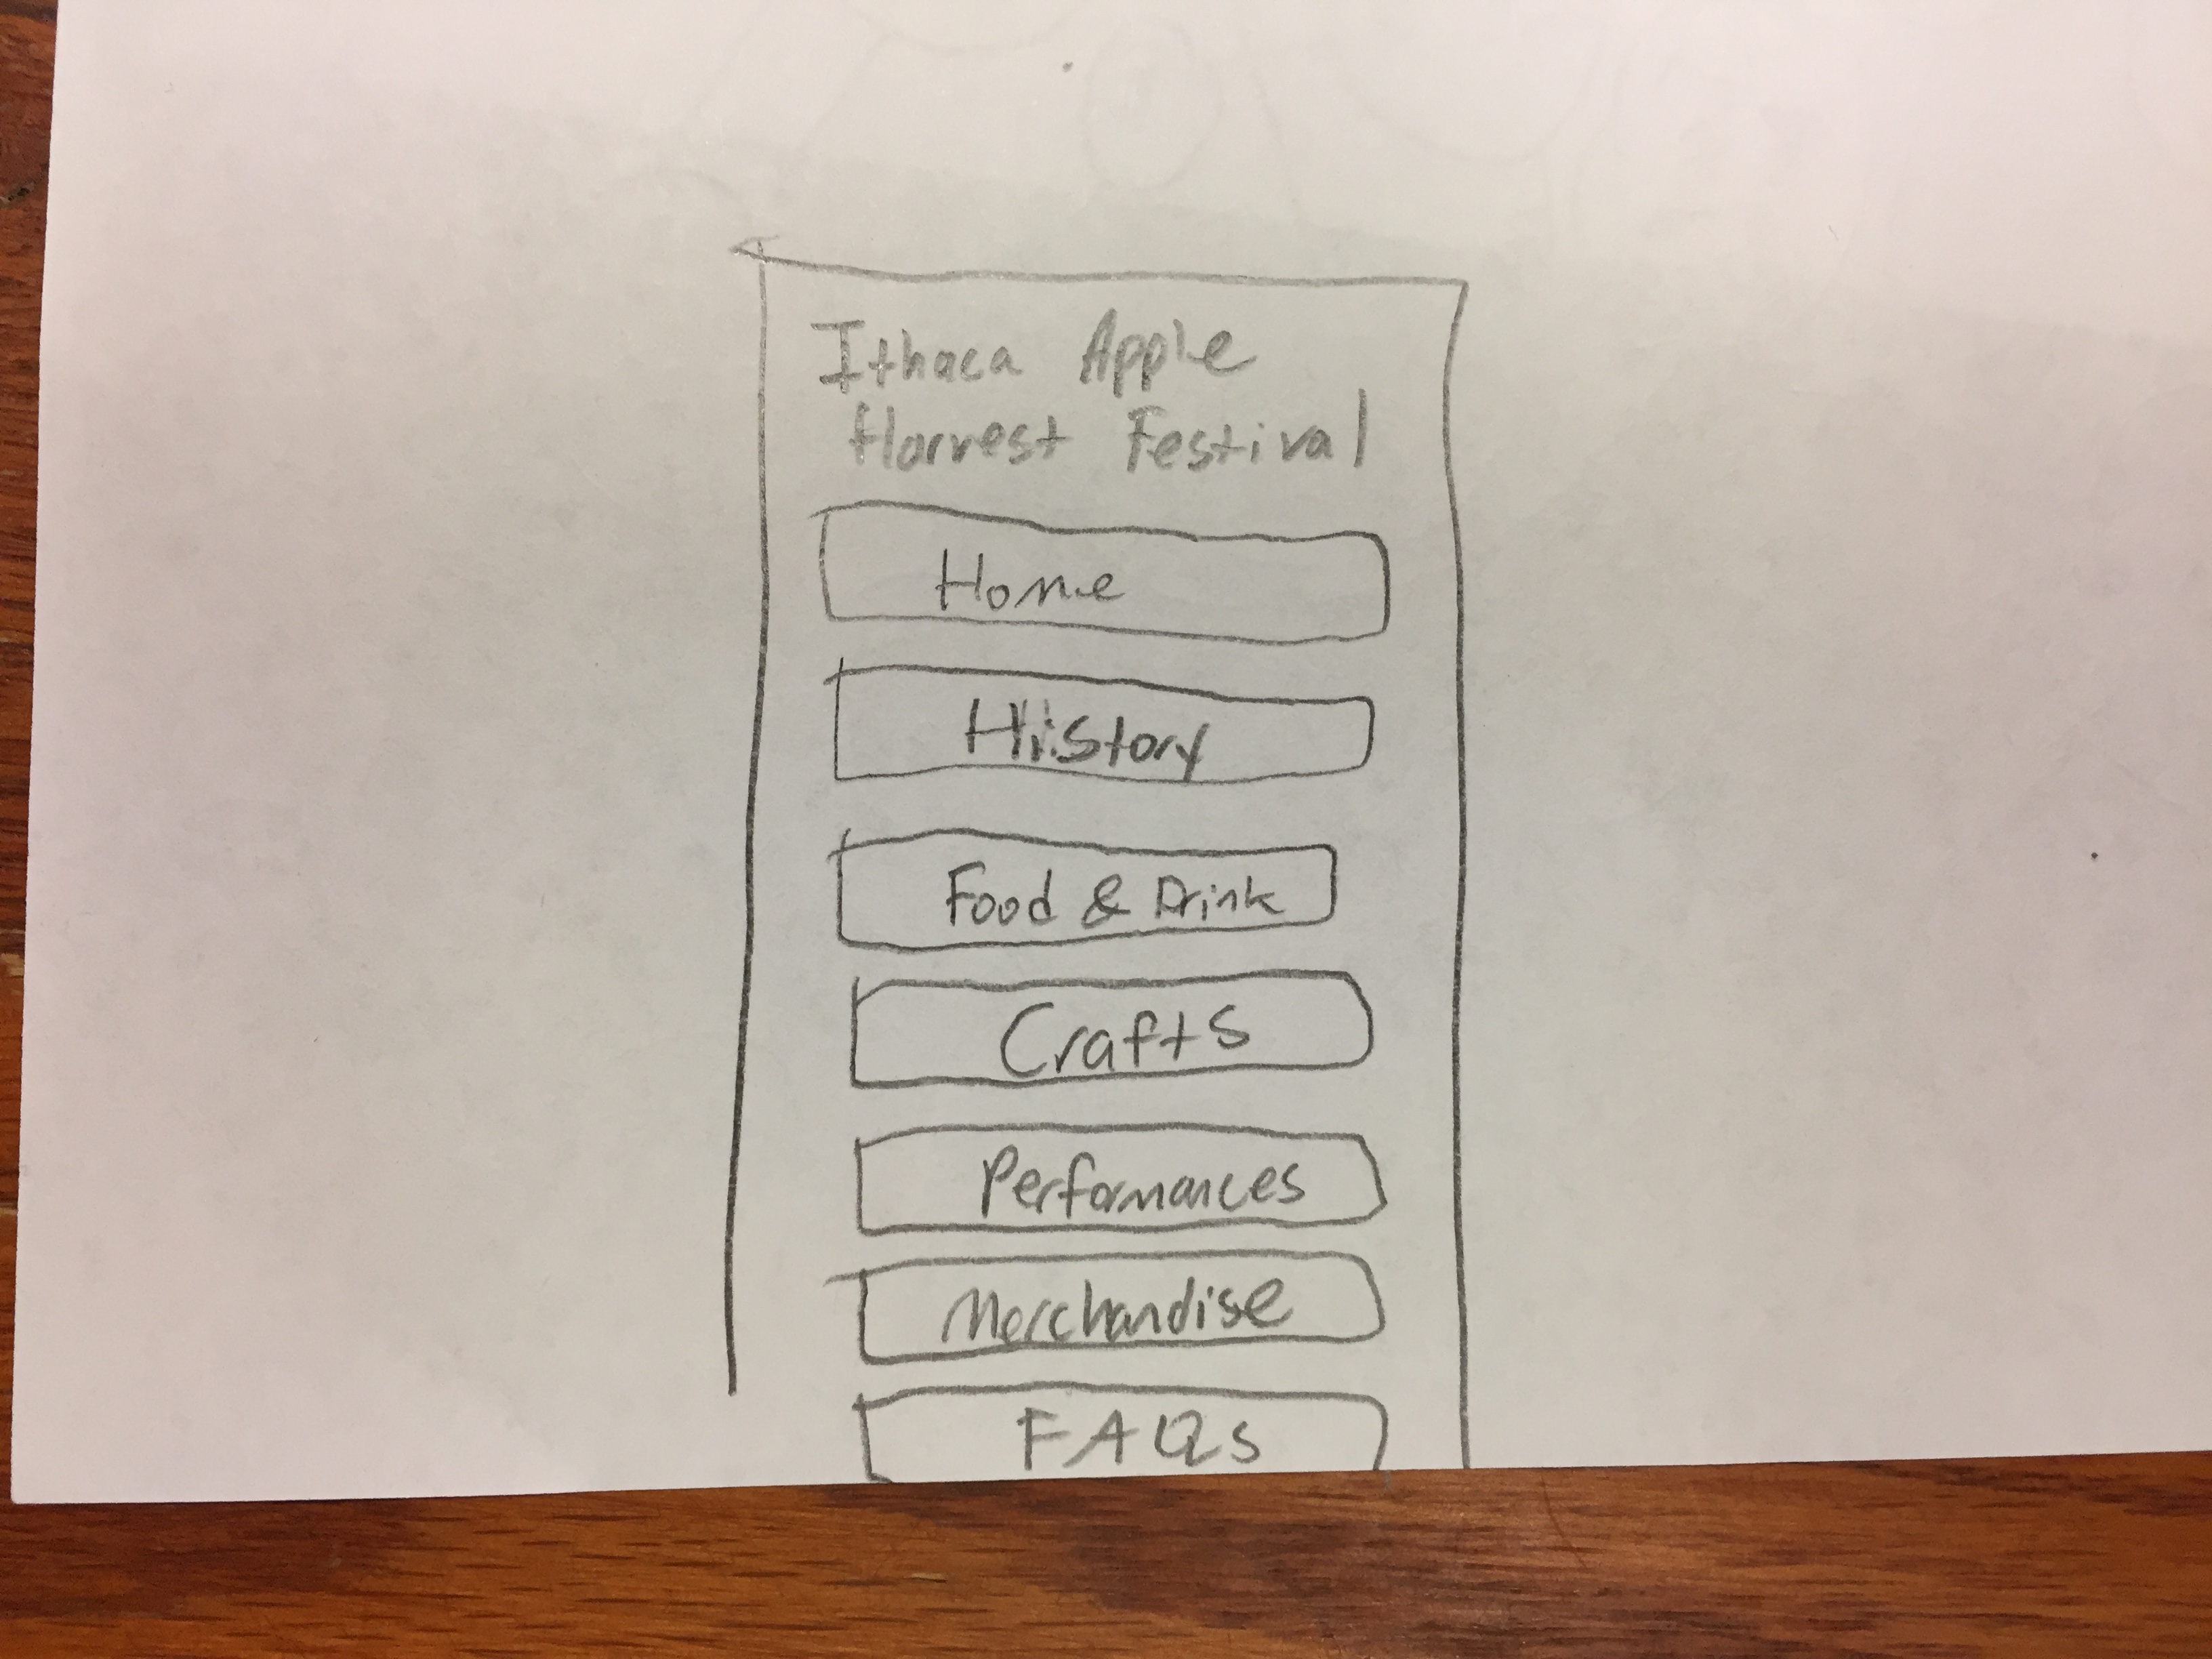 Ithaca Apple
Harvest Festival
Home
History
Food & Drink
Crafts
Performances
Merchandise
FAQs